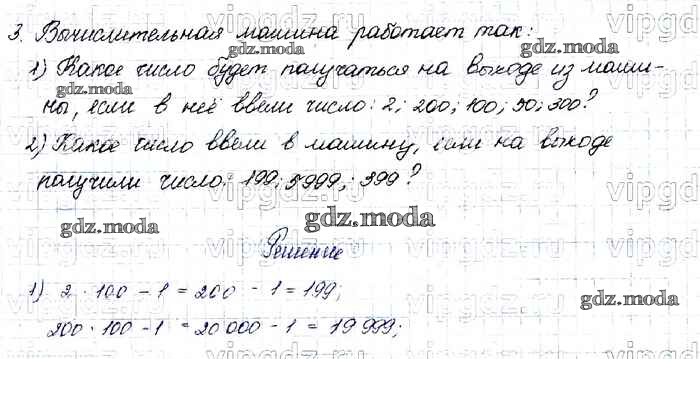 3. Вычислительная машина работает так:
1) Какое число будет получаться на выходе из маши-
ны, если в неё ввели число: 2; 200; 100; 50; 300?
2) Какое число ввели в машину, если на выходе
получили число: 199; 5999; 399?
Решение
1) 2 · 100 - 1 = 200 - 1 = 199;
200 · 100 - 1 = 20 000 - 1 = 19 999;
gdz.moda
gdz.moda
gdz.moda
gdz.moda
gdz.moda
gdz.moda
gdz.moda